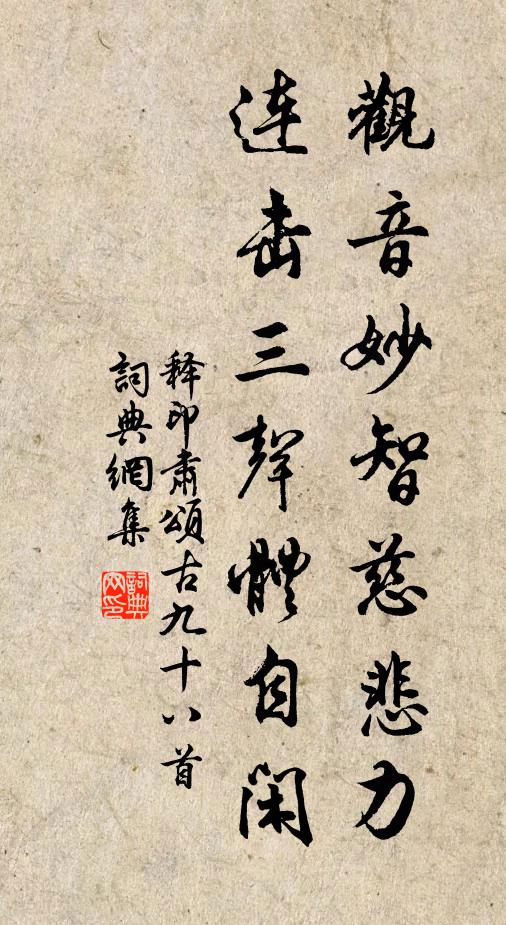 觀音妙智慈悲力
連击三聲體自閑
释印肅頌古九十八首
詞典網集
詞典
网印